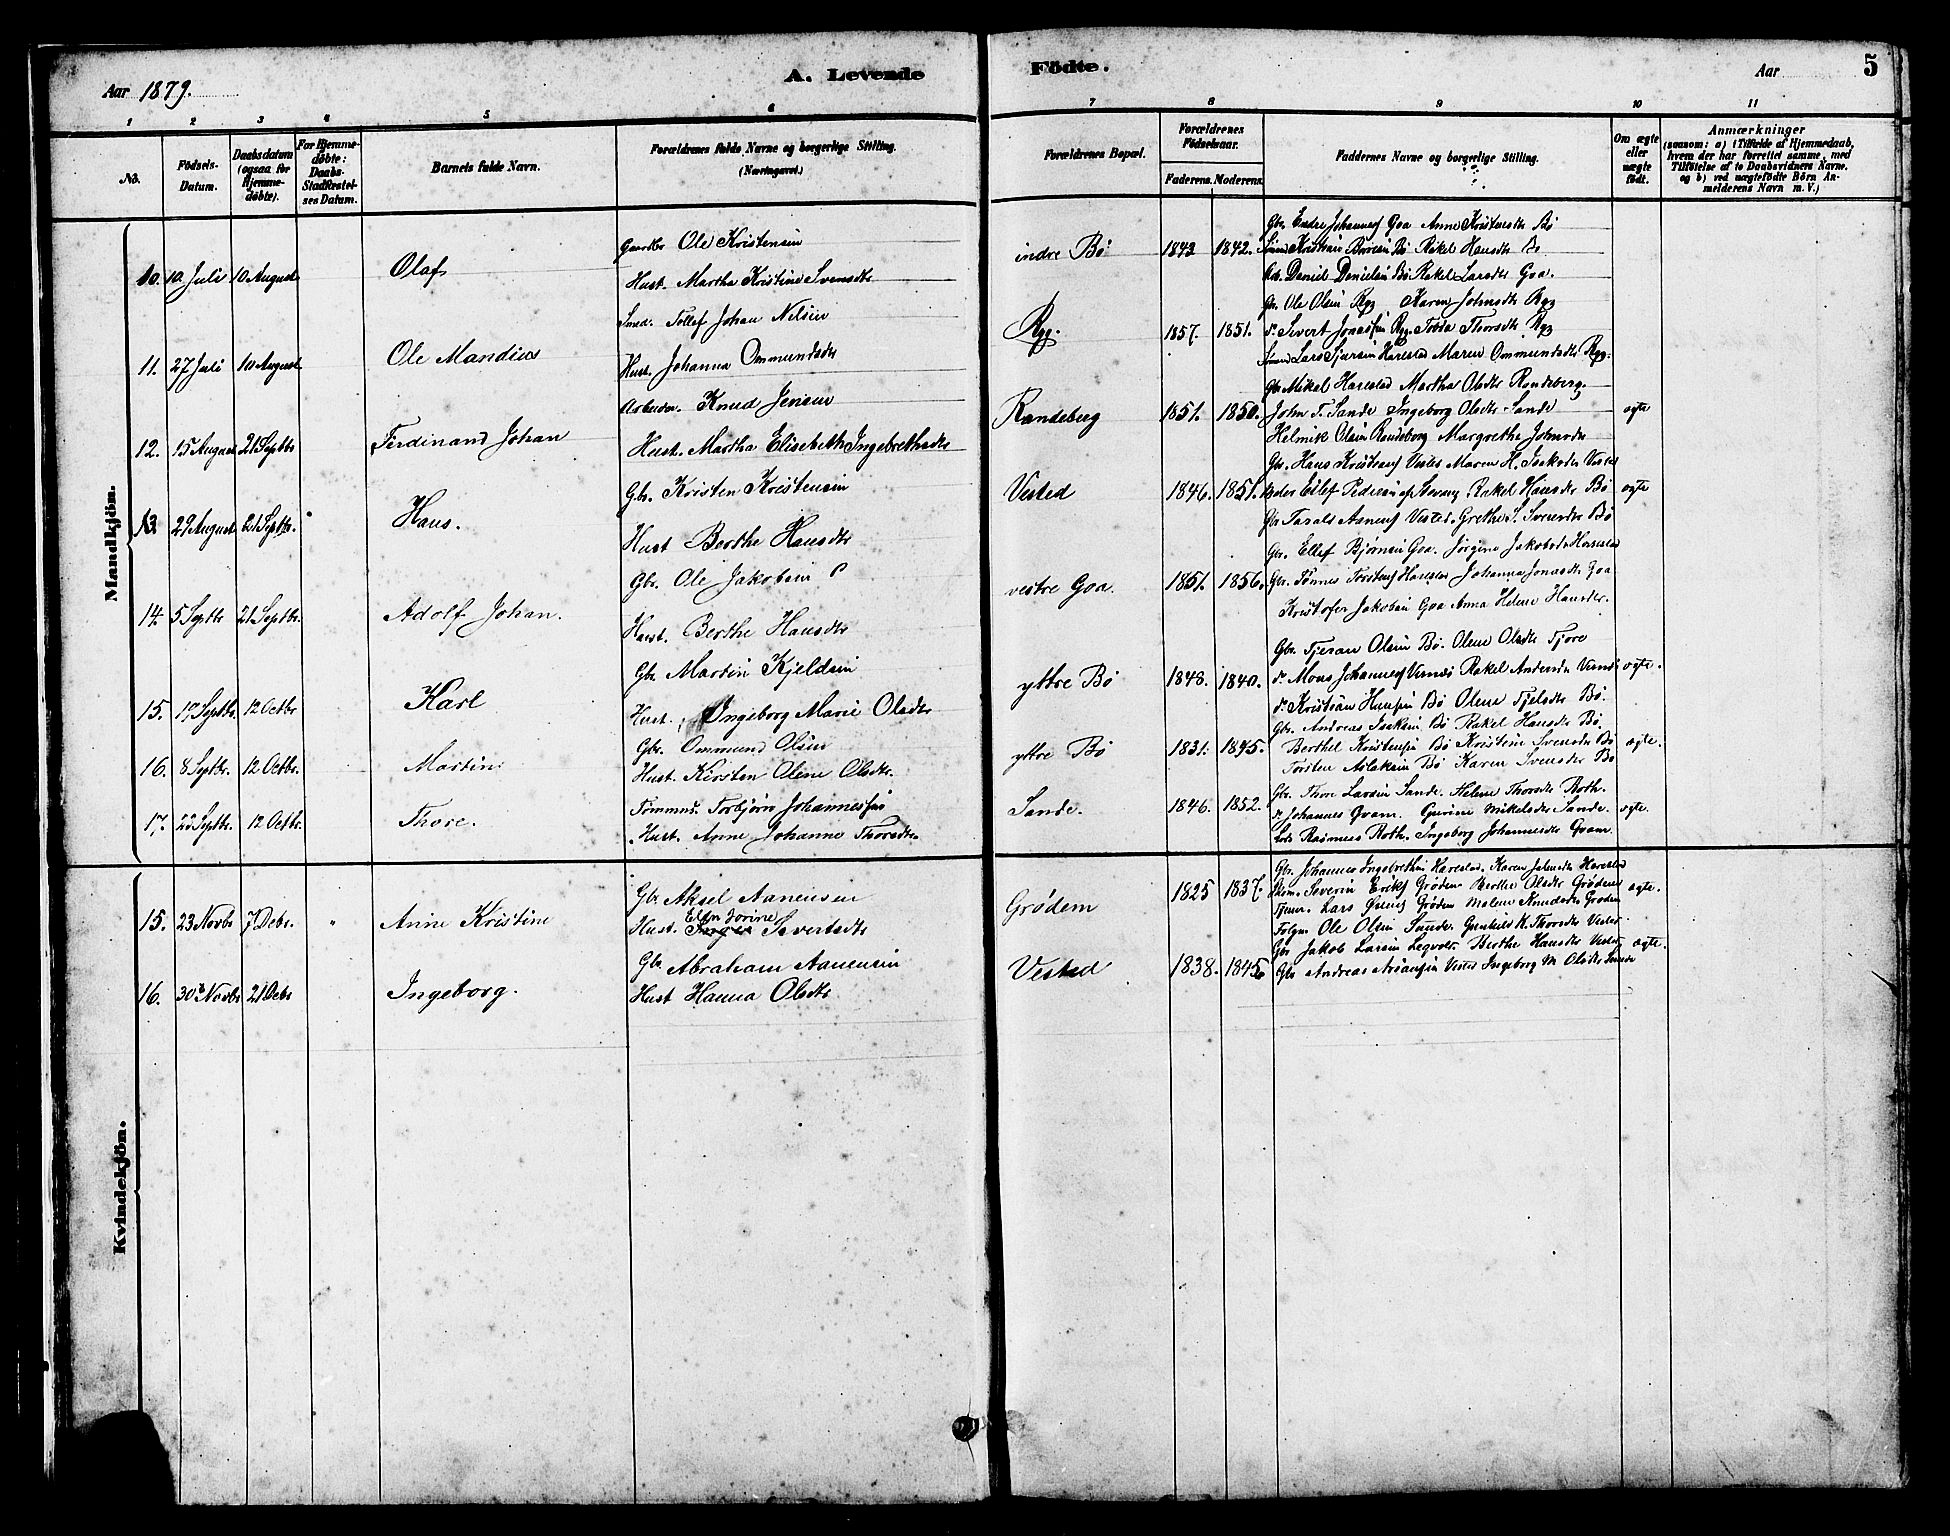 Aar 1879.
A. Levende
Födte.
Aar
5
1 2 3 4 5 6 7 8 9 10 11
No.
Födsels-Datum.
Daabsdatum (ogsaa for Hjemmedöbte).
For Hjemmedöbte: Daabs-Stadfæstelses Datum.
Barnets fulde Navn.
Forældrenes fulde Navne og borgerlige Stilling. (Næringsvei.)
Forældrenes Bopæl.
Forældrenes Födselsaar.
Faderens. Moderens.
Faddernes Navne og borgerlige Stilling.
Om ægte eller uægte födt.
Anmærkninger
(saasom: a) i Tilfælde af Hjemmedaab, hvem der har forrettet samme, med Tilföielse af to Daabsvidners Navne. og b) ved uægtefödte Börn Anmelderens Navn m. V.)
Mandkjön.
10. 10 Juli 10 August Olaf
Gaardbr Ole Kristensen
Hust. Martha Kristine Svensdtr
indre Bö 1843 1842.
Gbr. Endre Johannesf Goa Anne Kristensdtr Bö
Kristian Bö Rakel Hansdtr Bö
Daniel Danielsen Bö Rakel Larsdtr Goa.
11. 27 Juli 10 August Ole Mandius
Smed. Tollef Johan Nilsen
Hust. Johanna Ommundsdtr
Ryg. 1857. 1851.
Gbr. Ole Olsen Ryg Karen Johnsdtr Ryg
do Sivert Jonassen Ryg Tobia Thorsdtr Ryg
Lars Harestad Maren Ommundsdtr Ryg.
12. 15 August 21 Septbr Ferdinand Johan
Arbeider. Knud Jensen
Hust. Martha Elisebeth Ingebrethsdtr
Randeberg 1851. 1850. ægte
Gbr. Mikal Harestad Martha Olsdtr Randeberg.
John T. Sande Ingeborg Olsdtr Sande
Helmik Olsen Randeberg Margrethe Johnsdtr
13. 29 August 21 Septbr. Hans.
Gbr. Kristen Kristensen
Hust Berthe Hansdtr
Vested 1846. 1851. ægte
Gbr. Hans Kristensf Vested Maren H. Isaksdtr Vested
Eilef Pedersen af Stavang. Rakel Hansdtr Bö
Gbr Tarald Aanensf Vested. Grethe S. Svensdtr Bö
14. 5 Septbr 21 Septbr. Adolf Johan.
Gbr. Ole Jakobsen
Hust. Berthe Hansdtr
vestre Goa. 1851. 1856.
Gbr. Ellef Björnsen Goa. Jörgine Jakobsdtr Harestad
Gbr. Tönnes Torstensf Harestad Johanna Jonasdtr Goa
Kristofer Jakobsen Goa Anna Helene Hansdtr.
15. 17 Septbr. 12 Octbr Karl
Gbr Martin Kjeldsen
Hust. Ingeborg Marie Olsdtr
yttre Bö 1848. 1840. ægte.
Gbr. Tjeran Olsen Bö. Olene Olsdtr Tjore
do Mons Johannesf Viernæs Rakel Andersdtr Viernæs
do Kristian Hansen Bö Olene Tjelsdtr Bö.
16. 8 Septbr. 12 Octbr. Martin
Gbr. Ommund Olsen
Hust. Kirsten Olene Olsdtr.
yttre Bö 1831. 1845. ægte.
Gbr. Andreas Isaksen Bö Rakel Hansdtr Bö.
Berthel Kristensen Bö Kristine Svensdtr Bö
Torsten Aslaksen Bö Karen Svensdtr Bö
17. 23 Septbr. 12 Octbr. Thore.
Tömmerm. Torbjörn Johannesfen
Hust. Anne Johanne Thorsdtr
Sande. 1846. 1852. ægte.
Gbr. Thore Larsen Sande. Helene Thorsdtr Roth.
do Johannes Qvam. Gurine Mikelsdtr Sande.
Rasmus Roth. Ingeborg Johannesdtr Qvam.
Kvindekjön.
15. 23 Novbr 7 Debr. " Anne Kristine
Gbr. Aksel Aanensen
Hust. Ellen Jorine Sivertsdtr
Grödem 1825 1837. ægte.
Gbr. Johannes Ingebrethsen Harestad. Karen Johnsdtr Harestad
Severin Eriksf Grödem Berthe Olsdtr Grödem
Tjener. Lars Grödem Malene Knudsdtr Grödem
16. 30te Novbr 21 Debr " Ingeborg.
Gbr Abraham Aanensen
Hust Hanna Olsdtr
Vested 1838. 1845. ægte.
Folgm. Ole Olsen Sande. Gunhild K. Thorsdtr Vested.
Gbr. Jakob Larsen Leqvole. Berthe Hansdtr Vested
Gbr Andreas Vested Ingeborg M Olsdtr Sande